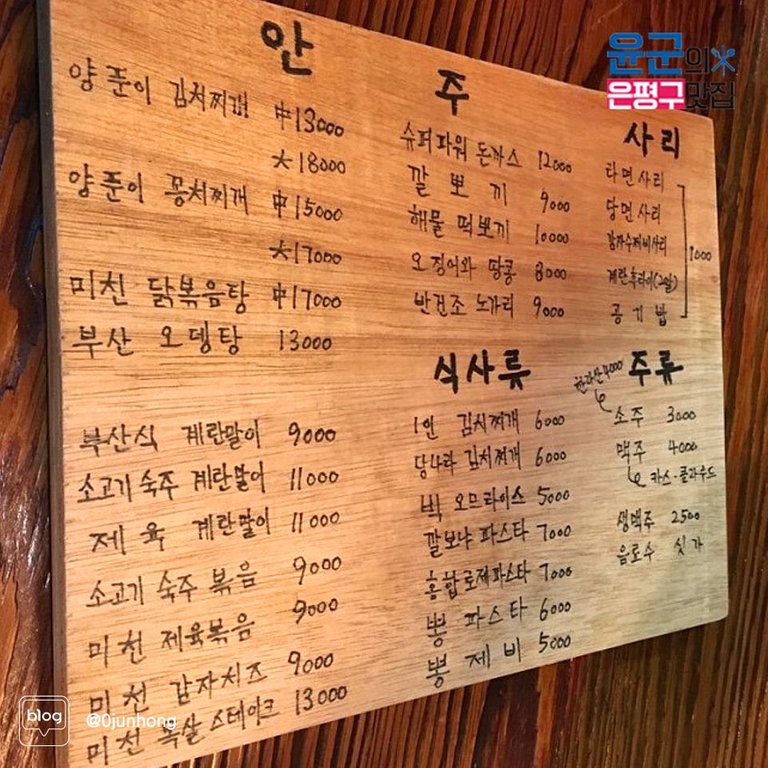 윤군의
은평구맛집
안주
양푼이 김치찌개 中13000
大18000
양푼이 꽁치찌개 中15000
大17000
미친 닭볶음탕 中17000
부산 오뎅탕 13000
부산식 계란말이 9000
소고기숙주 계란말이 11000
제육 계란말이 11000
소고기 숙주 볶음 9000
미친 제육볶음 9000
미친 감자치즈 9000
미친 목살스테이크 13000
슈퍼파워 돈까스 12000
깔뽀끼 9000
해물 떡뽀끼 10000
오징어와 땅콩 8000
반건조 노가리 9000
식사류
1인 김치찌개 6000
당나라 김치찌개 6000
빅 오므라이스 5000
깔보나 파스타 7000
홍합로제파스타 7000
뽕 파스타 6000
뽕제비 5000
사리
라면사리
당면사리
감자수제비사리
계란후라이(2알)
공기밥
1000
주류
한라산4000
소주 3000
맥주 4000
카스·클라우드
생맥주 2500
음료수 싯가
blog @0junhong